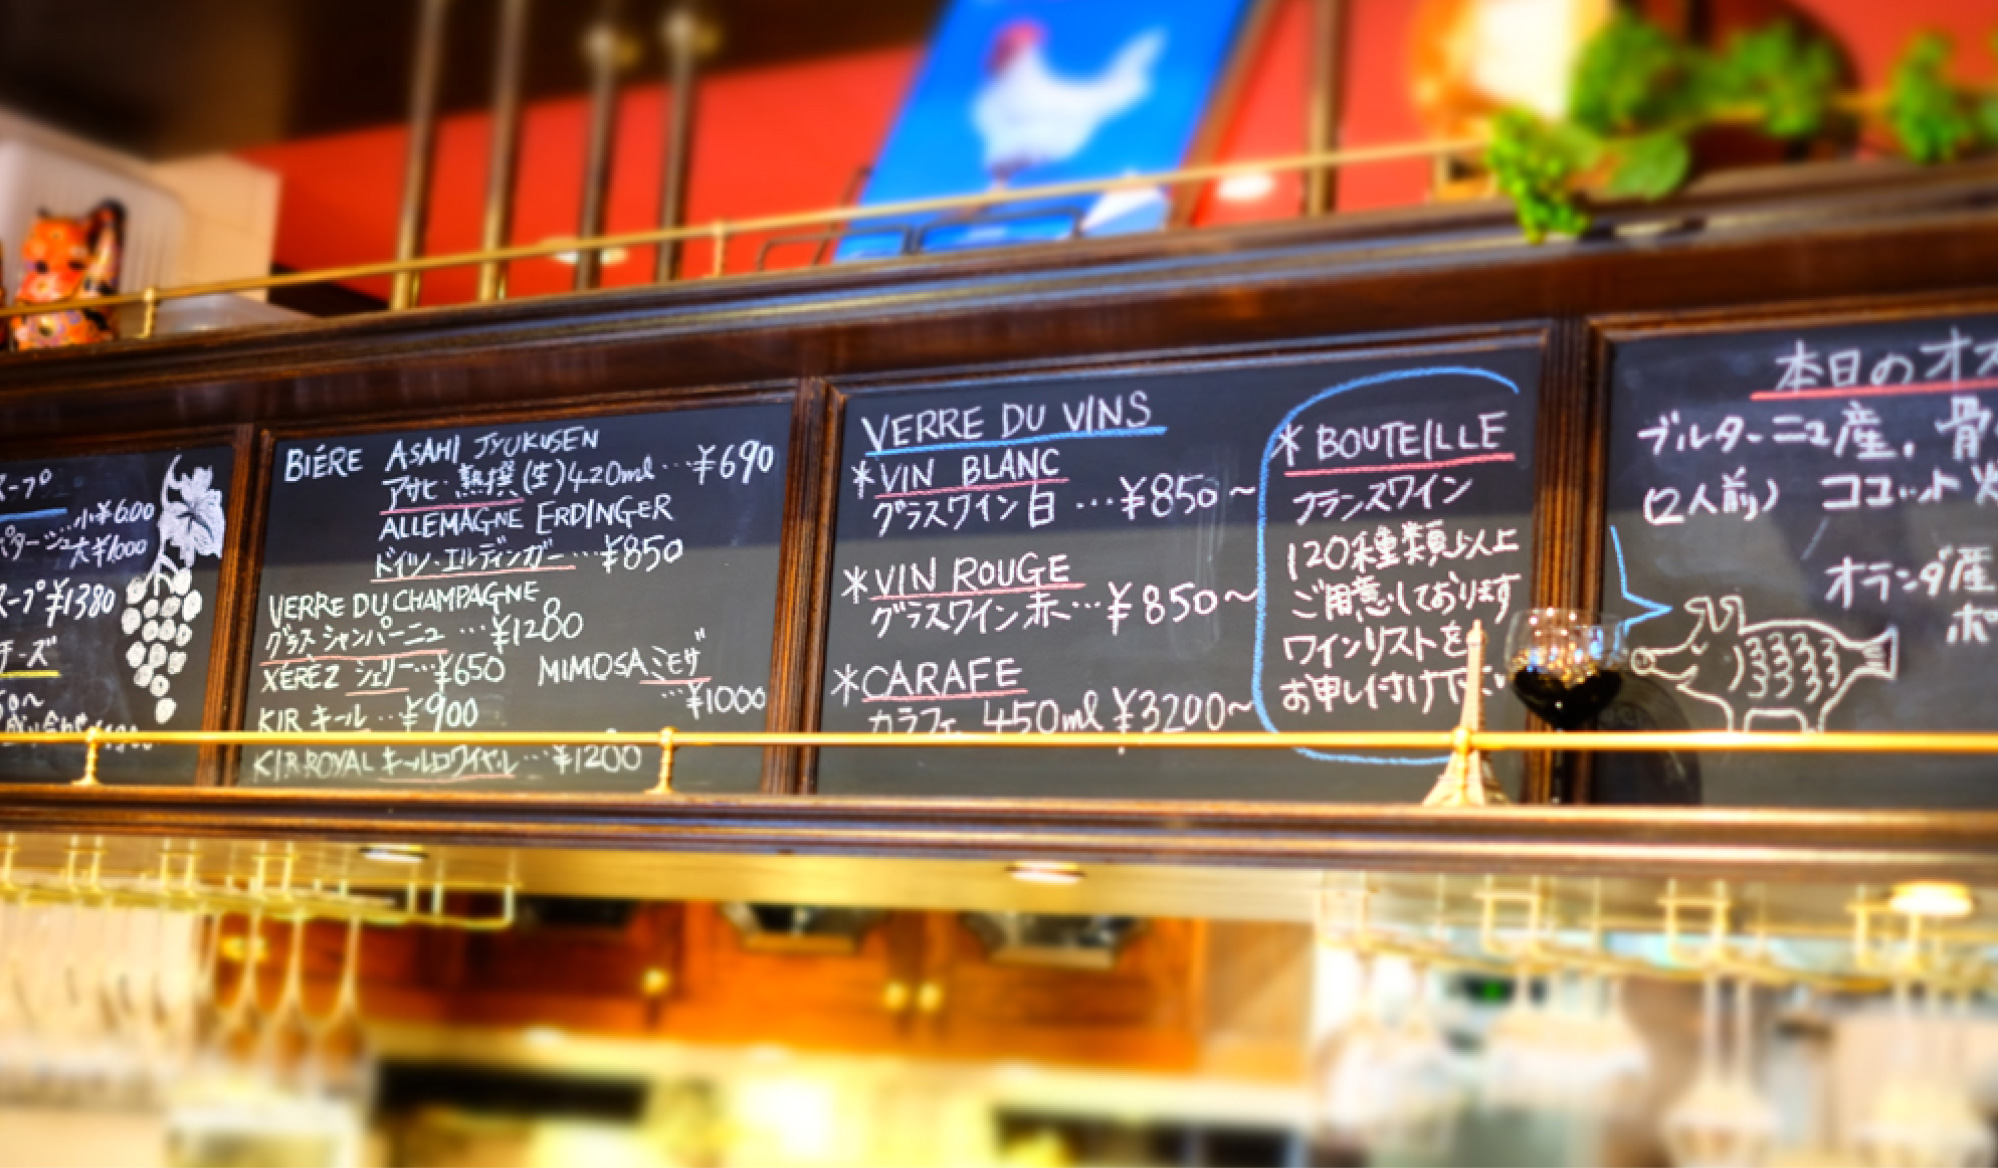 スープ
小¥600
大¥1000
スープ ¥1380
チーズ
BIÉRE ASAHI JYUKUSEN
アサヒ・熟撰(生)420ml…¥690
ALLEMAGNE ERDINGER
ドイツ・エルディンガー…¥850
VERRE DU CHAMPAGNE
グラスシャンパーニュ…¥1280
XÉREZ シェリー…¥650 MIMOSA ミモザ
…¥1000
KIR キール…¥900
KIR ROYAL キールロワイヤル…¥1200
VERRE DU VINS
*VIN BLANC
グラスワイン白…¥850~
*VIN ROUGE
グラスワイン赤…¥850~
*CARAFE
カラフェ 450ml ¥3200~
*BOUTEILLE
フランスワイン
120種類以上
ご用意しております
ワインリストを
お申し付け下さい
本日のオス
ブルターニュ産、骨
(2人前) ココット
オランダ産
ポ